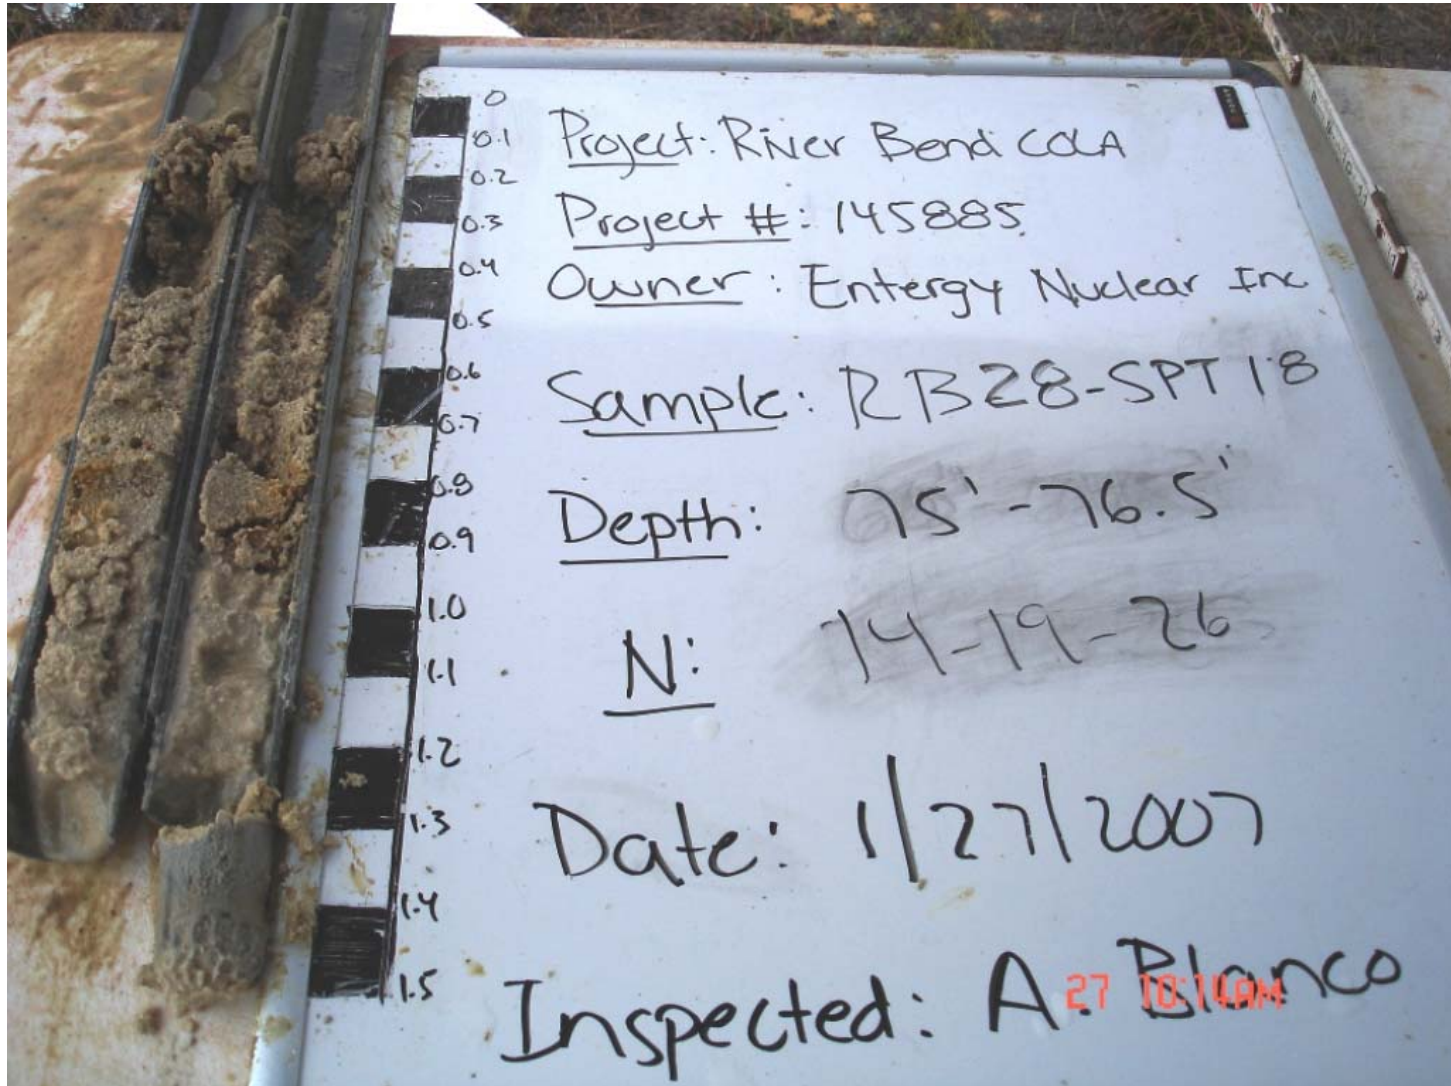 0
0.1
0.2
0.3
0.4
0.5
0.6
0.7
0.8
0.9
1.0
1.1
1.2
1.3
1.4
1.5
Project: River Bend COLA
Project #: 145885
Owner: Entergy Nuclear Inc
Sample: RB28-SPT 18
Depth: 75'-76.5'
N: 14-19-26
Date: 1/27/2007
Inspected: A. Blanco
27 10:14AM